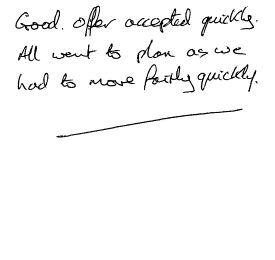 Good. Offer accepted quickly.
All went to plan as we
had to move fairly quickly.